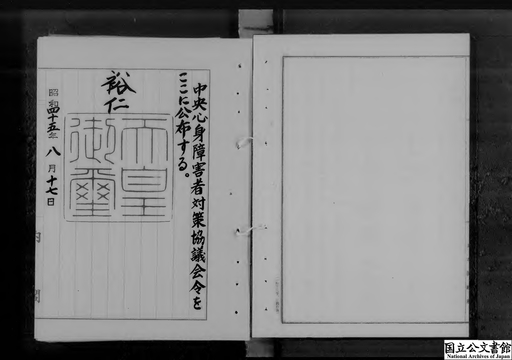 中央心身障害者対策協議会令を
ここに公布する。
裕仁
天皇
御璽
昭和四十五年八月十七日
内閣
国立公文書館
National Archives of Japan